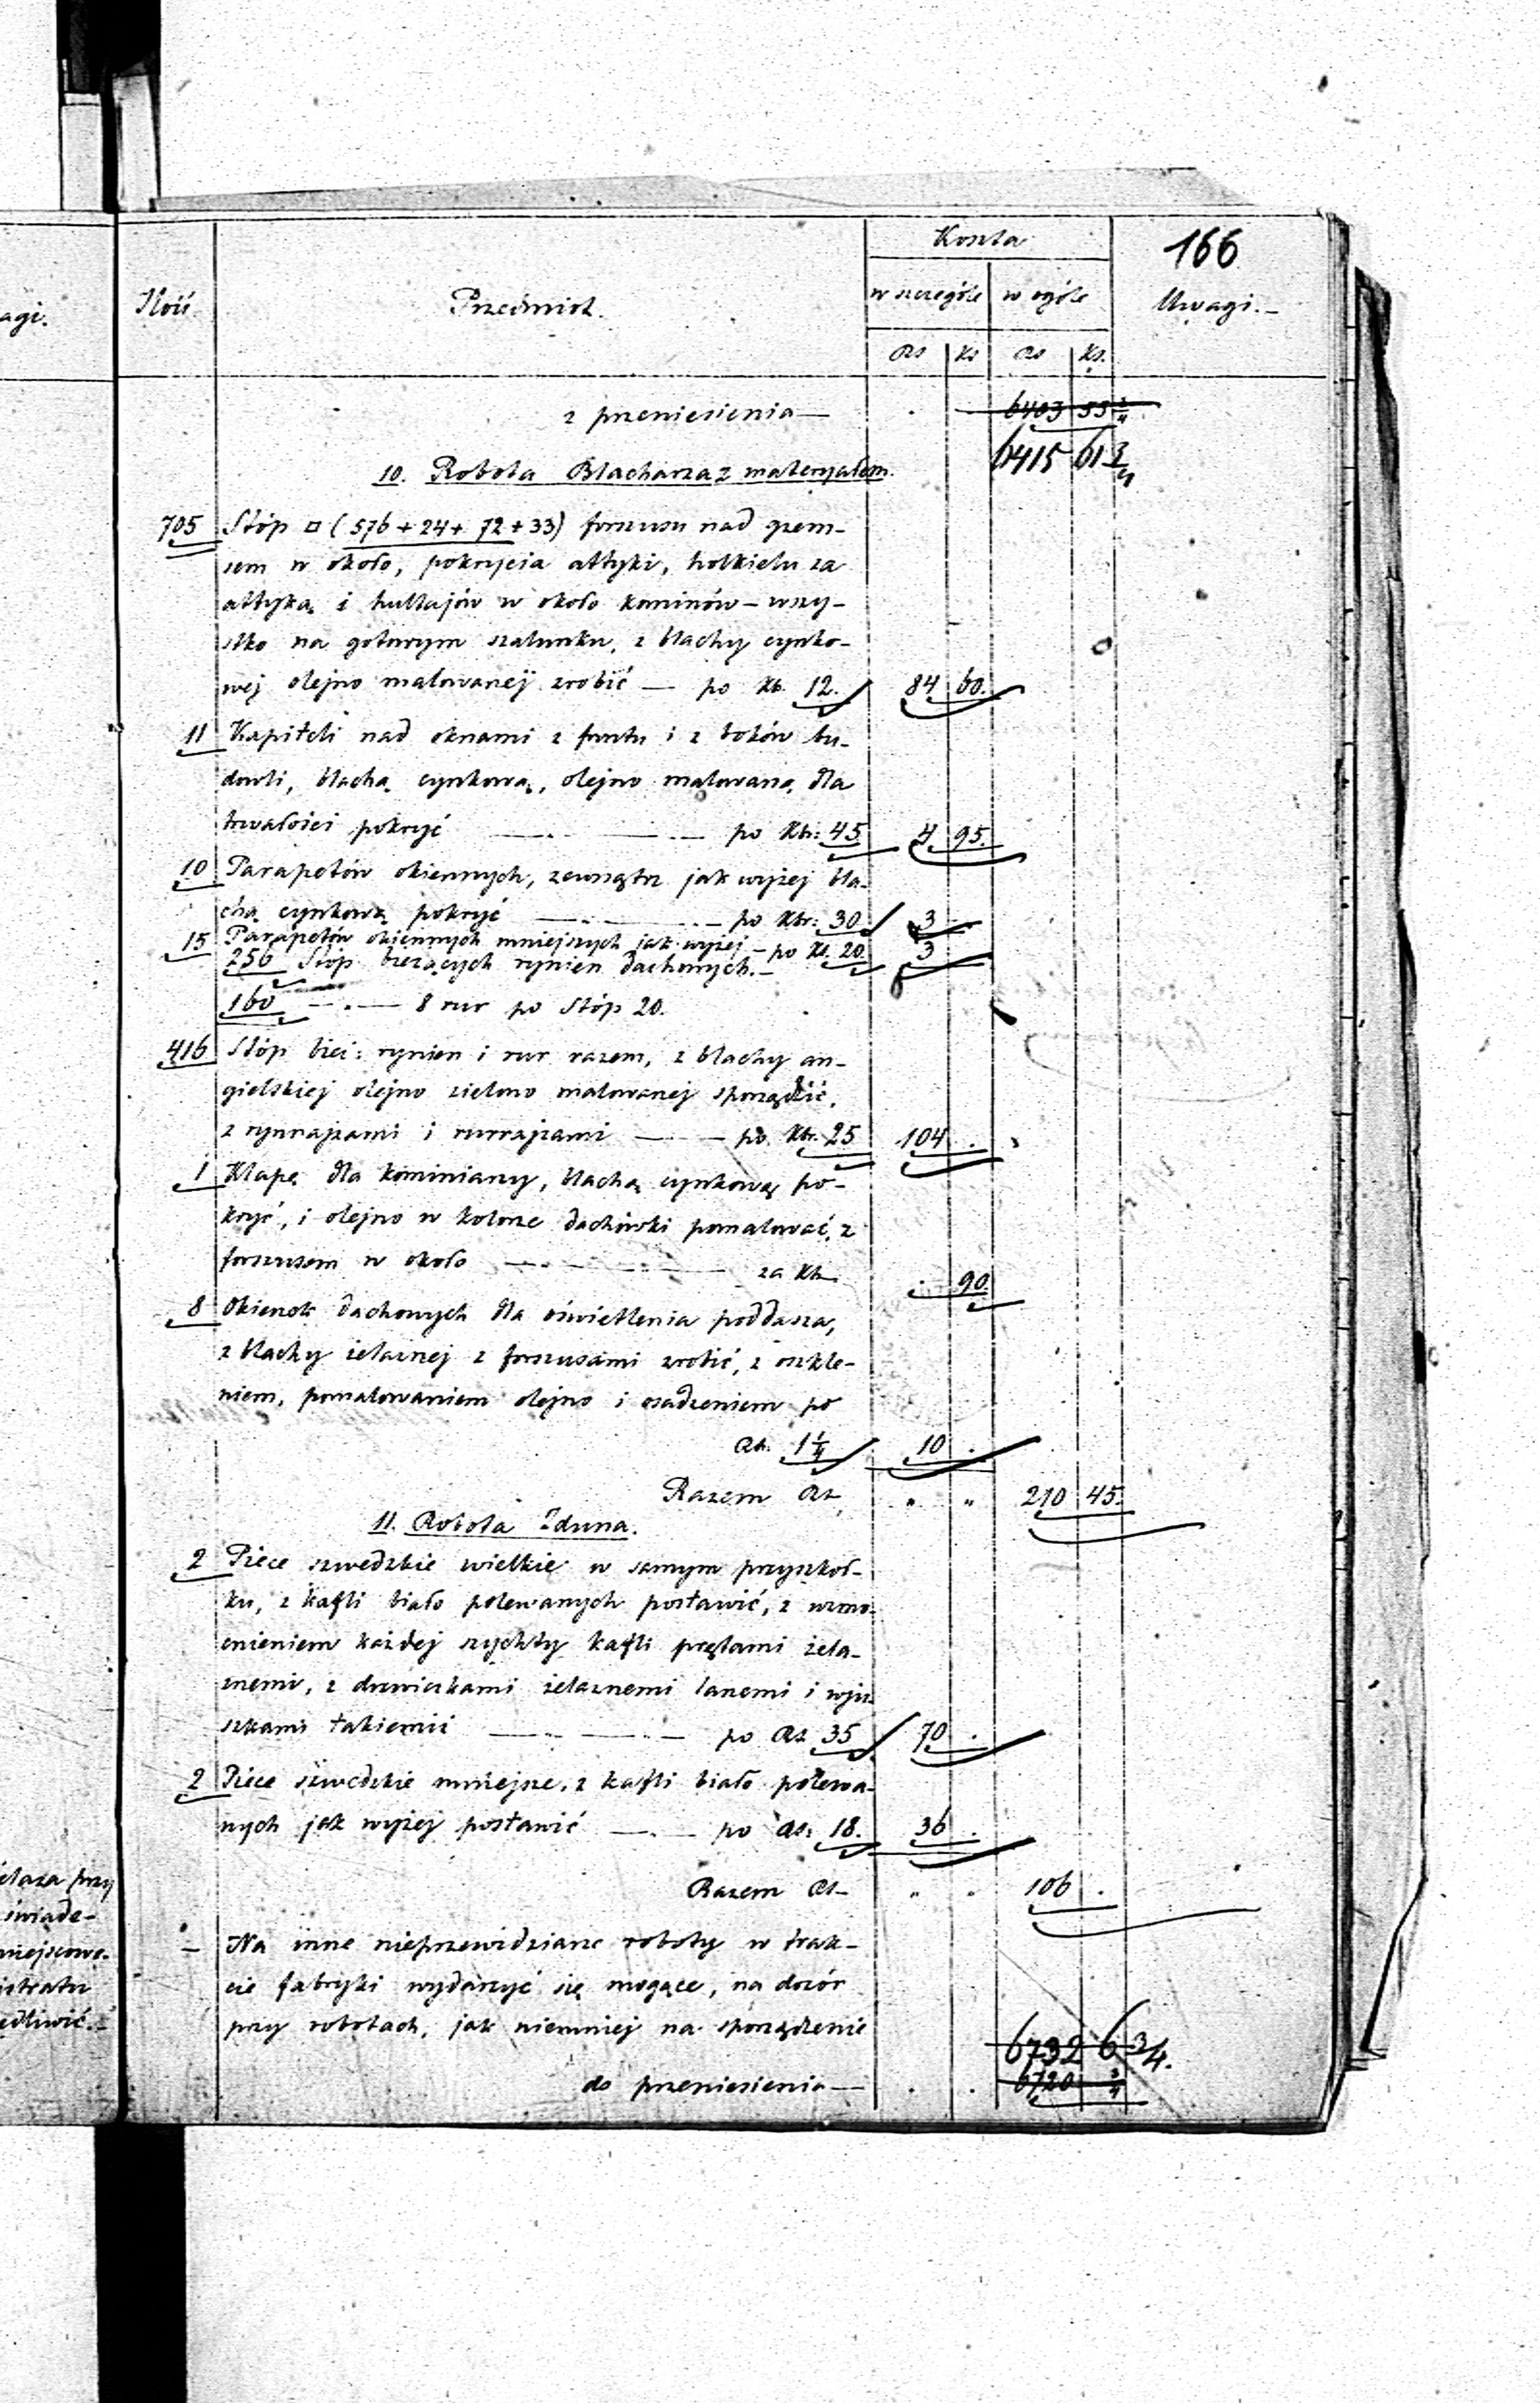 166
Koszta
agi.
Ilość
Przedmiot.
w szczególe
w ogóle
Uwagi.-
Rs
Ks
Rs
Ks.
z przeniesienia —
6403 55 3/4
6415 61 3/4
10. Robota Blacharza z materyałem.
705 Stóp □ (576 + 24 + 72 + 33) forszusu nad gzem-
sem w około, pokrycia attyki, holkielu za
attyką i huttajów w około kominów — wszy-
stko na gotowym szalunku, z blachy cynko-
wej olejno malowanej zrobić — po Kb. 12. 84 60.
11 Kapiteli nad oknami z frontu i z boków bu-
dowli, blachą cynkową, olejno malowaną dla
trwałości pokryć — po Kbr: 45 4 95.
10 Parapetów okiennych, zewnątrz jak wyżej bla-
chą cynkową pokryć — po Kbr: 30 3 —
15 Parapetów okiennych mniejszych jak wyżej — po Ks. 20. 3 —
256 Stóp bieżących rynien dachowych. —
160 — " — 8 rur po Stóp 20.
416 Stóp bież: rynien i rur razem, z blachy an-
gielskiej olejno zielono malowanej sporządzić,
z rynnajzami i rurrajzami — po Kbr. 25 104 .
1 Klapę dla kominiarzy, blachą cynkową po-
kryć, i olejno w kolorze dachówki pomalować, z
forszusem w około — za Kb. . 90.
8 Okienek dachowych dla oświetlenia poddasza,
z blachy żelaznej z forszusami zrobić, z oszkle-
niem, pomalowaniem olejno i osadzeniem po
Rb. 1 1/4 10 .
Razem Rs " " 210 45.
11. Robota Zduna.
2 Piece szwedzkie wielkie w samym przyszkoł-
ku, z kafli biało polewanych postawić, z wzmo-
cnieniem każdej szychty kafli prętami żela-
znemi, z drzwiczkami żelaznemi lanemi i wju-
szkami takiemiż — po Rs 35 70 .
2 Piece szwedzkie mniejsze, z kafli biało polewa-
nych jak wyżej postawić — po Rs: 18. 36 .
Razem Rs — " " 106 .
— Na inne nieprzewidziane roboty w trak-
cie fabryki wydarzyć się mogące, na dozór
przy robotach, jak niemniej na sporządzenie
6732 6 3/4.
do przeniesienia — . . 6720 3/4
elaza przy
świade-
miejscowe.
istratu
edliwić. -